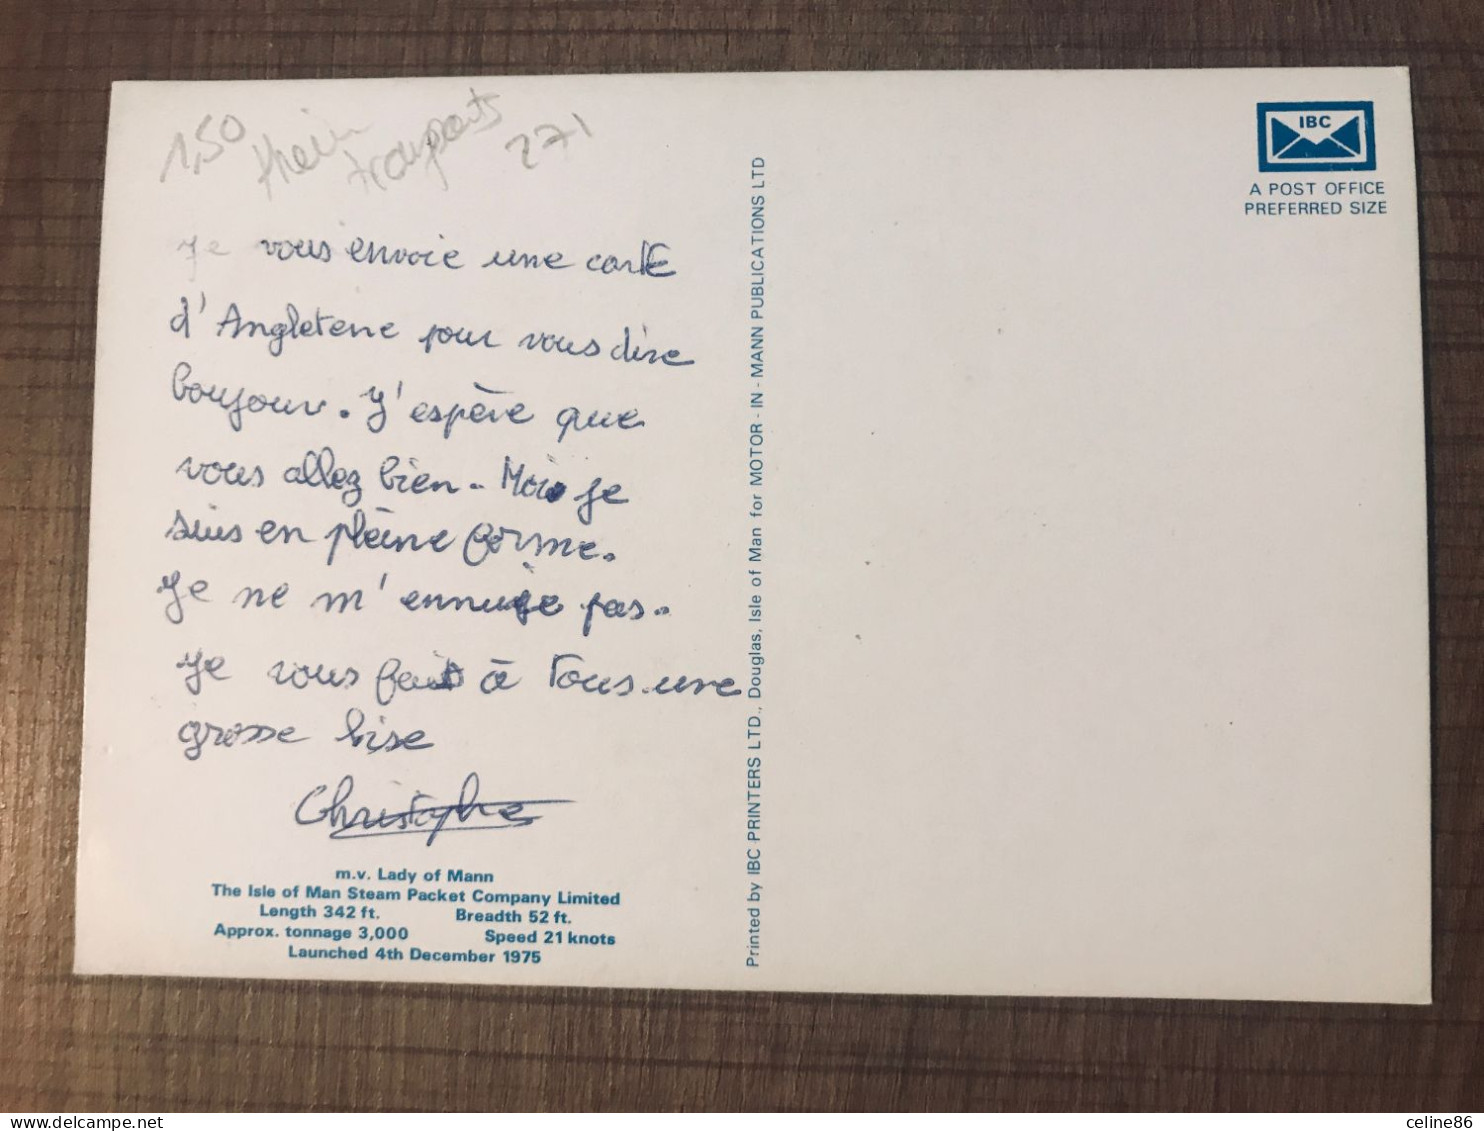 1,50
transports
271
Je vous envoie une cartE
d'Angleterre pour vous dire
boujour. J'espère que
vous allez bien. Moi je
suis en plèine forme.
Je ne m'ennuie pas.
Je vous fait à tous une
grosse bise
Christophe
m.v. Lady of Mann
The Isle of Man Steam Packet Company Limited
Length 342 ft. Breadth 52 ft.
Approx. tonnage 3,000 Speed 21 knots
Launched 4th December 1975
Printed by IBC PRINTERS LTD., Douglas, Isle of Man for MOTOR - IN - MANN PUBLICATIONS LTD
IBC
A POST OFFICE
PREFERRED SIZE
delcampe.net
celine86